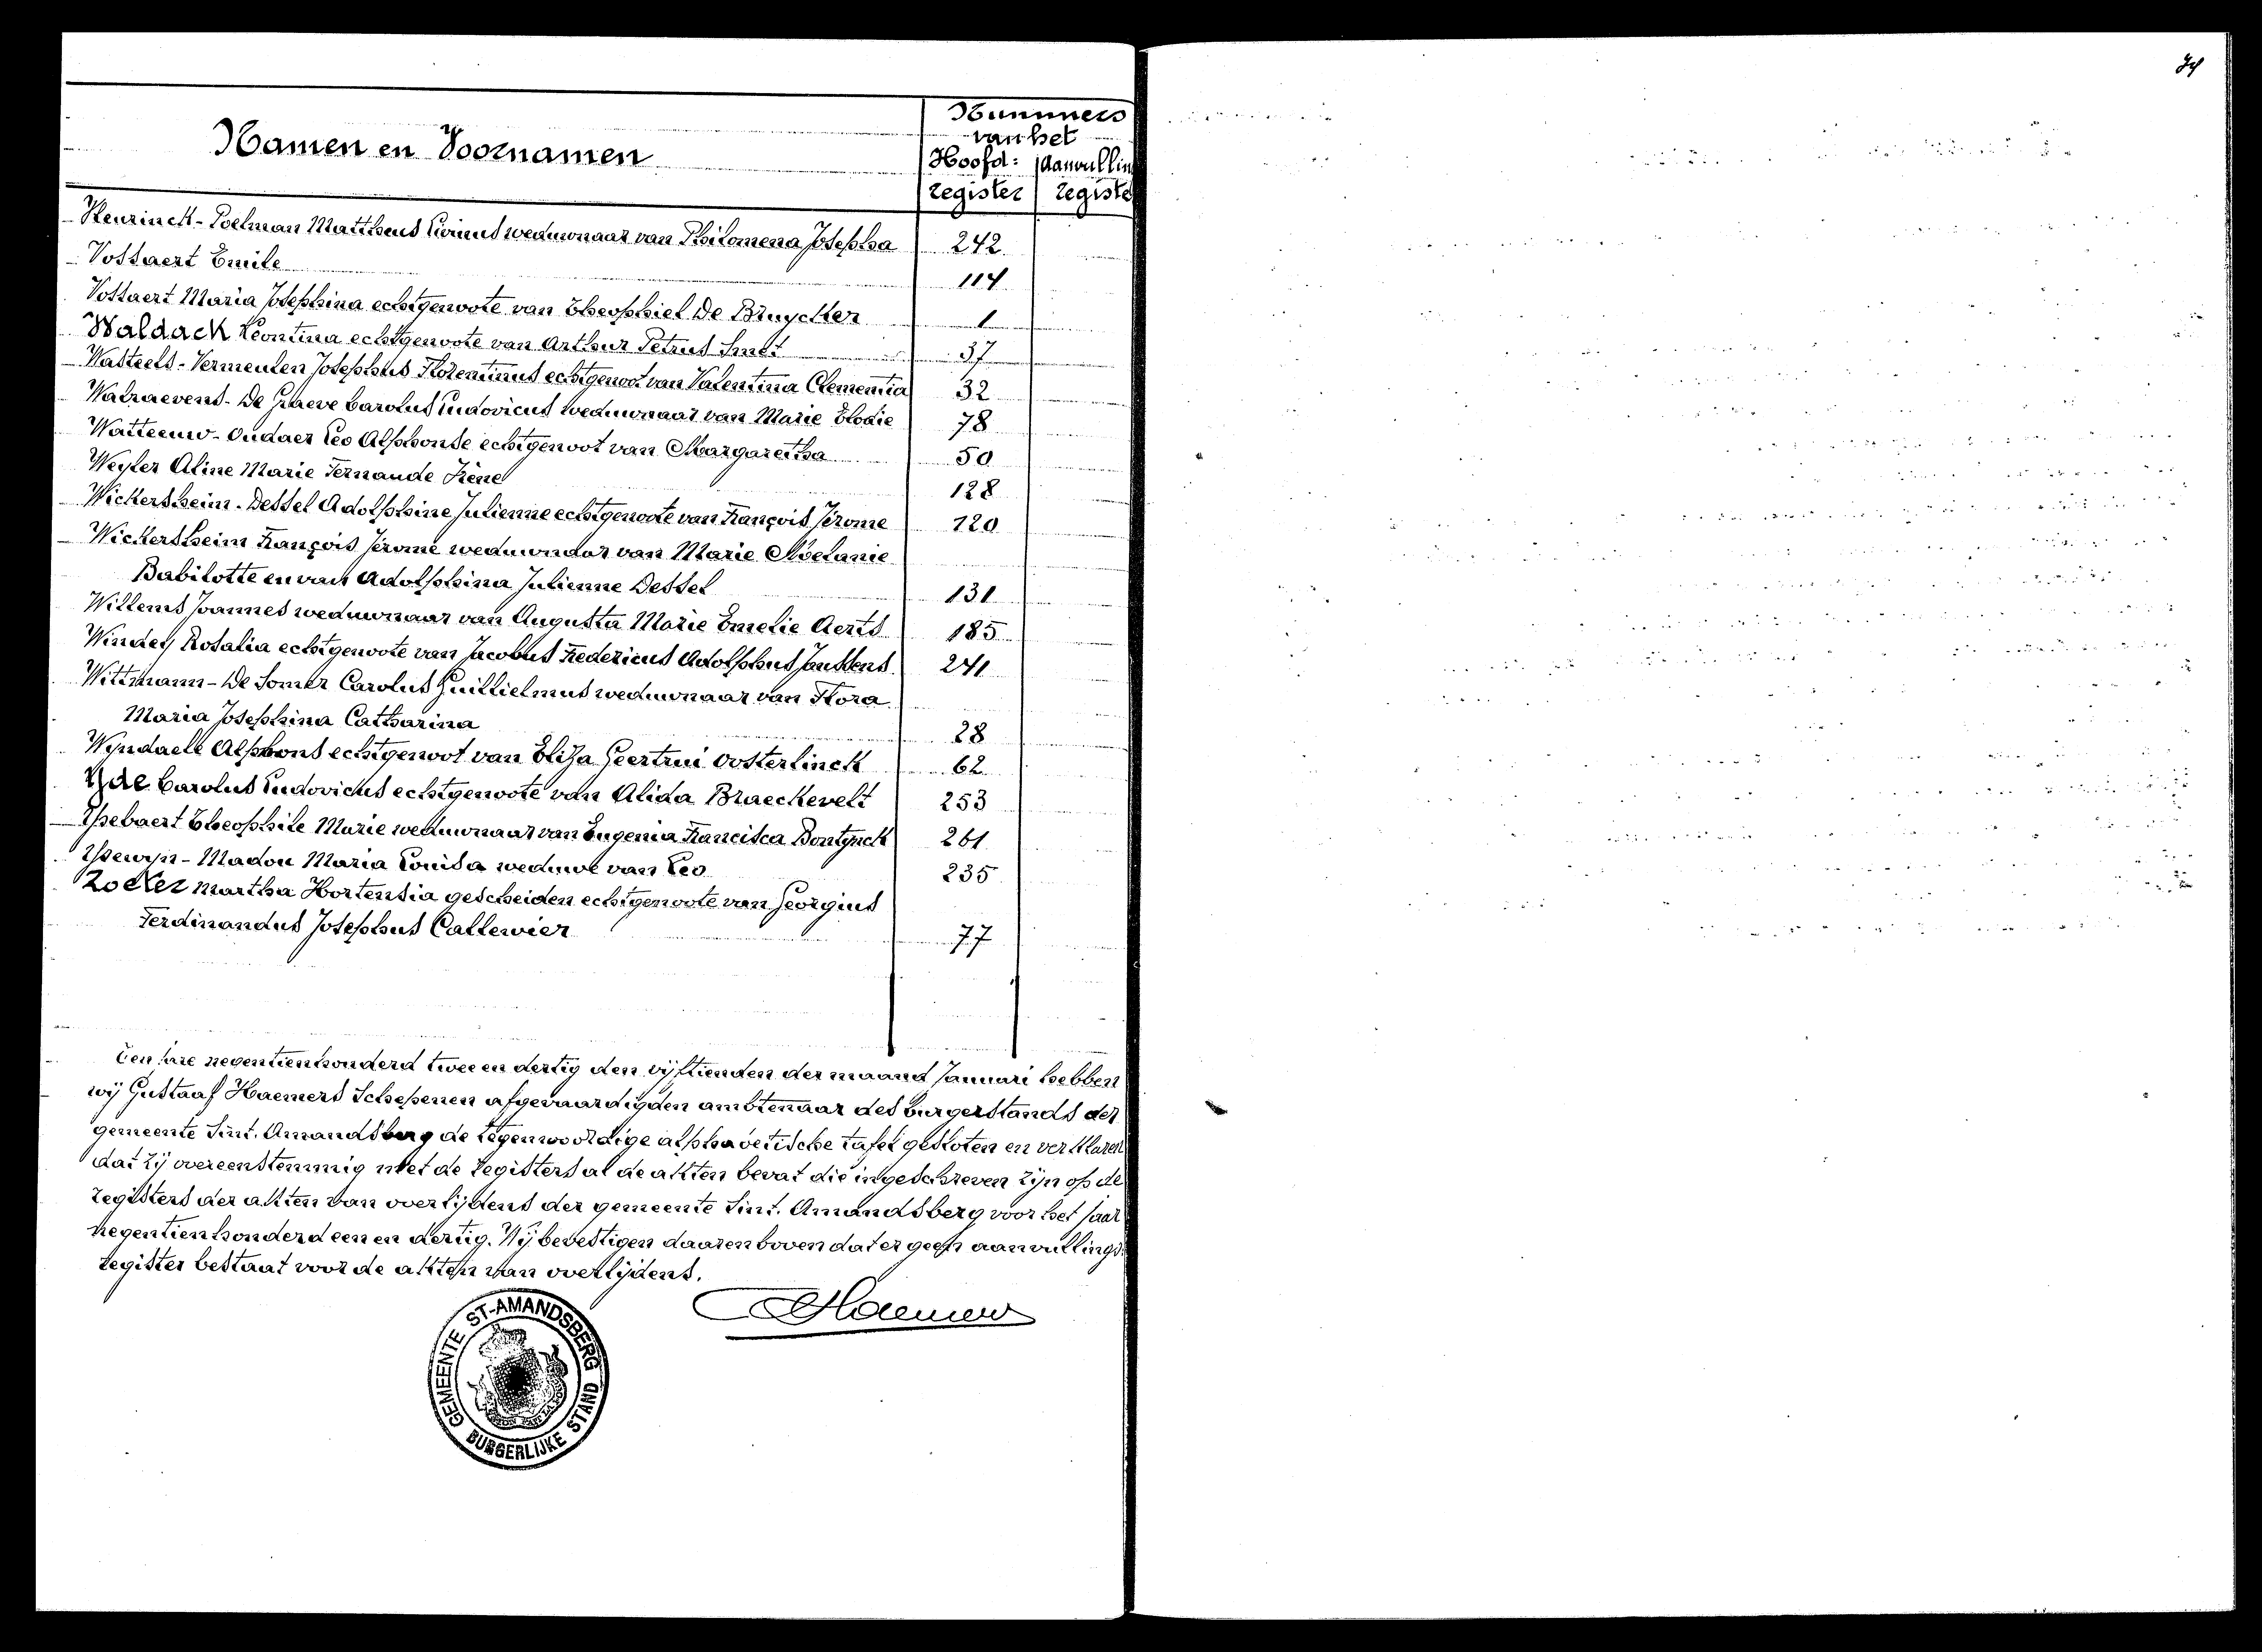 Nummers
van het
Namen en Voornamen
Hoofd: Aanvulling
register registe
Poelman Mattheus weduwnaar van Philomena Josepha 242
Vossaert Emile 114
Vossaert Maria Josephina echtgenoote van Theophiel De Bruycker 1
Waldack Leontina echtgenoote van Arthur Petrus Smet 37
Wasteels-Vermeulen Josephus Florentinus echtgenoot van Valentina Clementia 32
Walraevens-De Graeve Carolus Ludovicus weduwnaar van Marie Elodie 78
Watteeuw-Oudaer Leo Alphonse echtgenoot van Margaretha 50
Weyler Aline Marie Fernande Irène 128
Wickersheim-Dessel Adolphine Julienne echtgenoote van François Jérome 120
Wickersheim François Jérome weduwnaar van Marie Melanie
Babilotte en van Adolphina Julienne Dessel 131
Willems Joannes weduwnaar van Augusta Marie Emelie Aerts 185
Windey Rosalia echtgenoote van Jacobus Fredericus Adolphus Janssens 241
Wittmann-De Somer Carolus Guillielmus weduwnaar van Flora
Maria Josephina Catharina 28
Wyndaele Alphons echtgenoot van Eliza Geertrui Oosterlinck 62
Yde Carolus Ludovicus echtgenoote van Alida Braeckevelt 253
Ysebaert Theophile Marie weduwnaar van Eugenia Francisca Bontynck 261
Ysewyn-Madou Maria Louisa weduwe van Leo 235
Martha Hortensia gescheiden echtgenoote van Georgius
Ferdinandus Josephus Callewier 77
Ten jare negentienhonderd twee en dertig den vijftienden der maand Januari hebben
wij Gustaaf Haemers Schepenen afgevaardigden ambtenaar des burgerstands der
gemeente Sint. Amandsberg de tegenwoordige alphabetische tafel gesloten en verklaren
dat zij overeenstemmig met de registers al de akten bevat die ingeschreven zijn op de
registers der akten van overlijdens der gemeente Sint. Amandsberg voor het jaar
negentienhonderd een en dertig. Wij bevestigen daarenboven dat er geen aanvullings:
register bestaat voor de akten van overlijdens.
Haemers
GEMEENTE ST-AMANDSBERG
BURGERLIJKE STAND